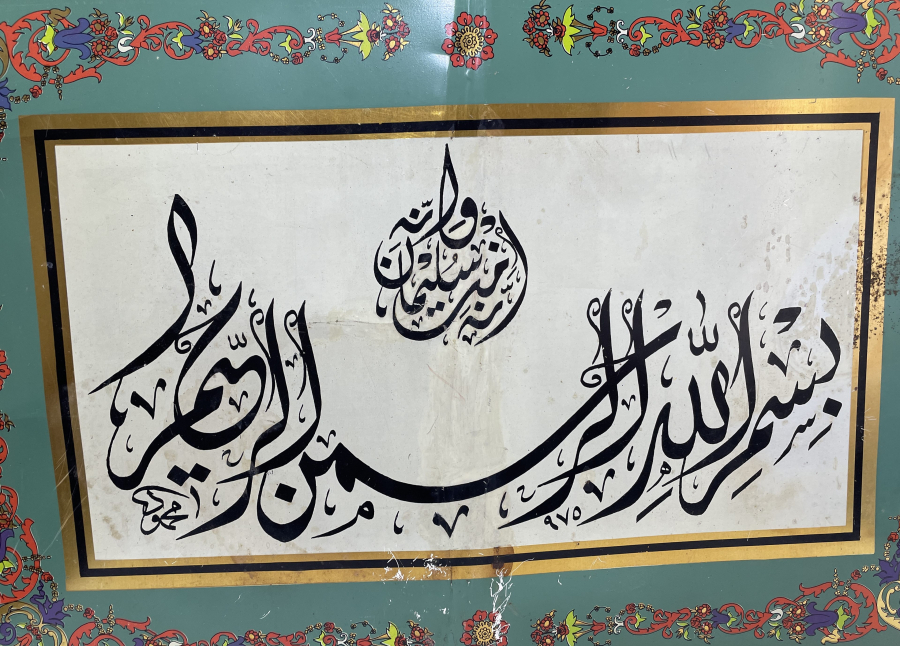 إنّه من سُليمان وإنّه
بِسْمِ اللّٰهِ الرحمن الرّحيم
٩٧٥
محمود